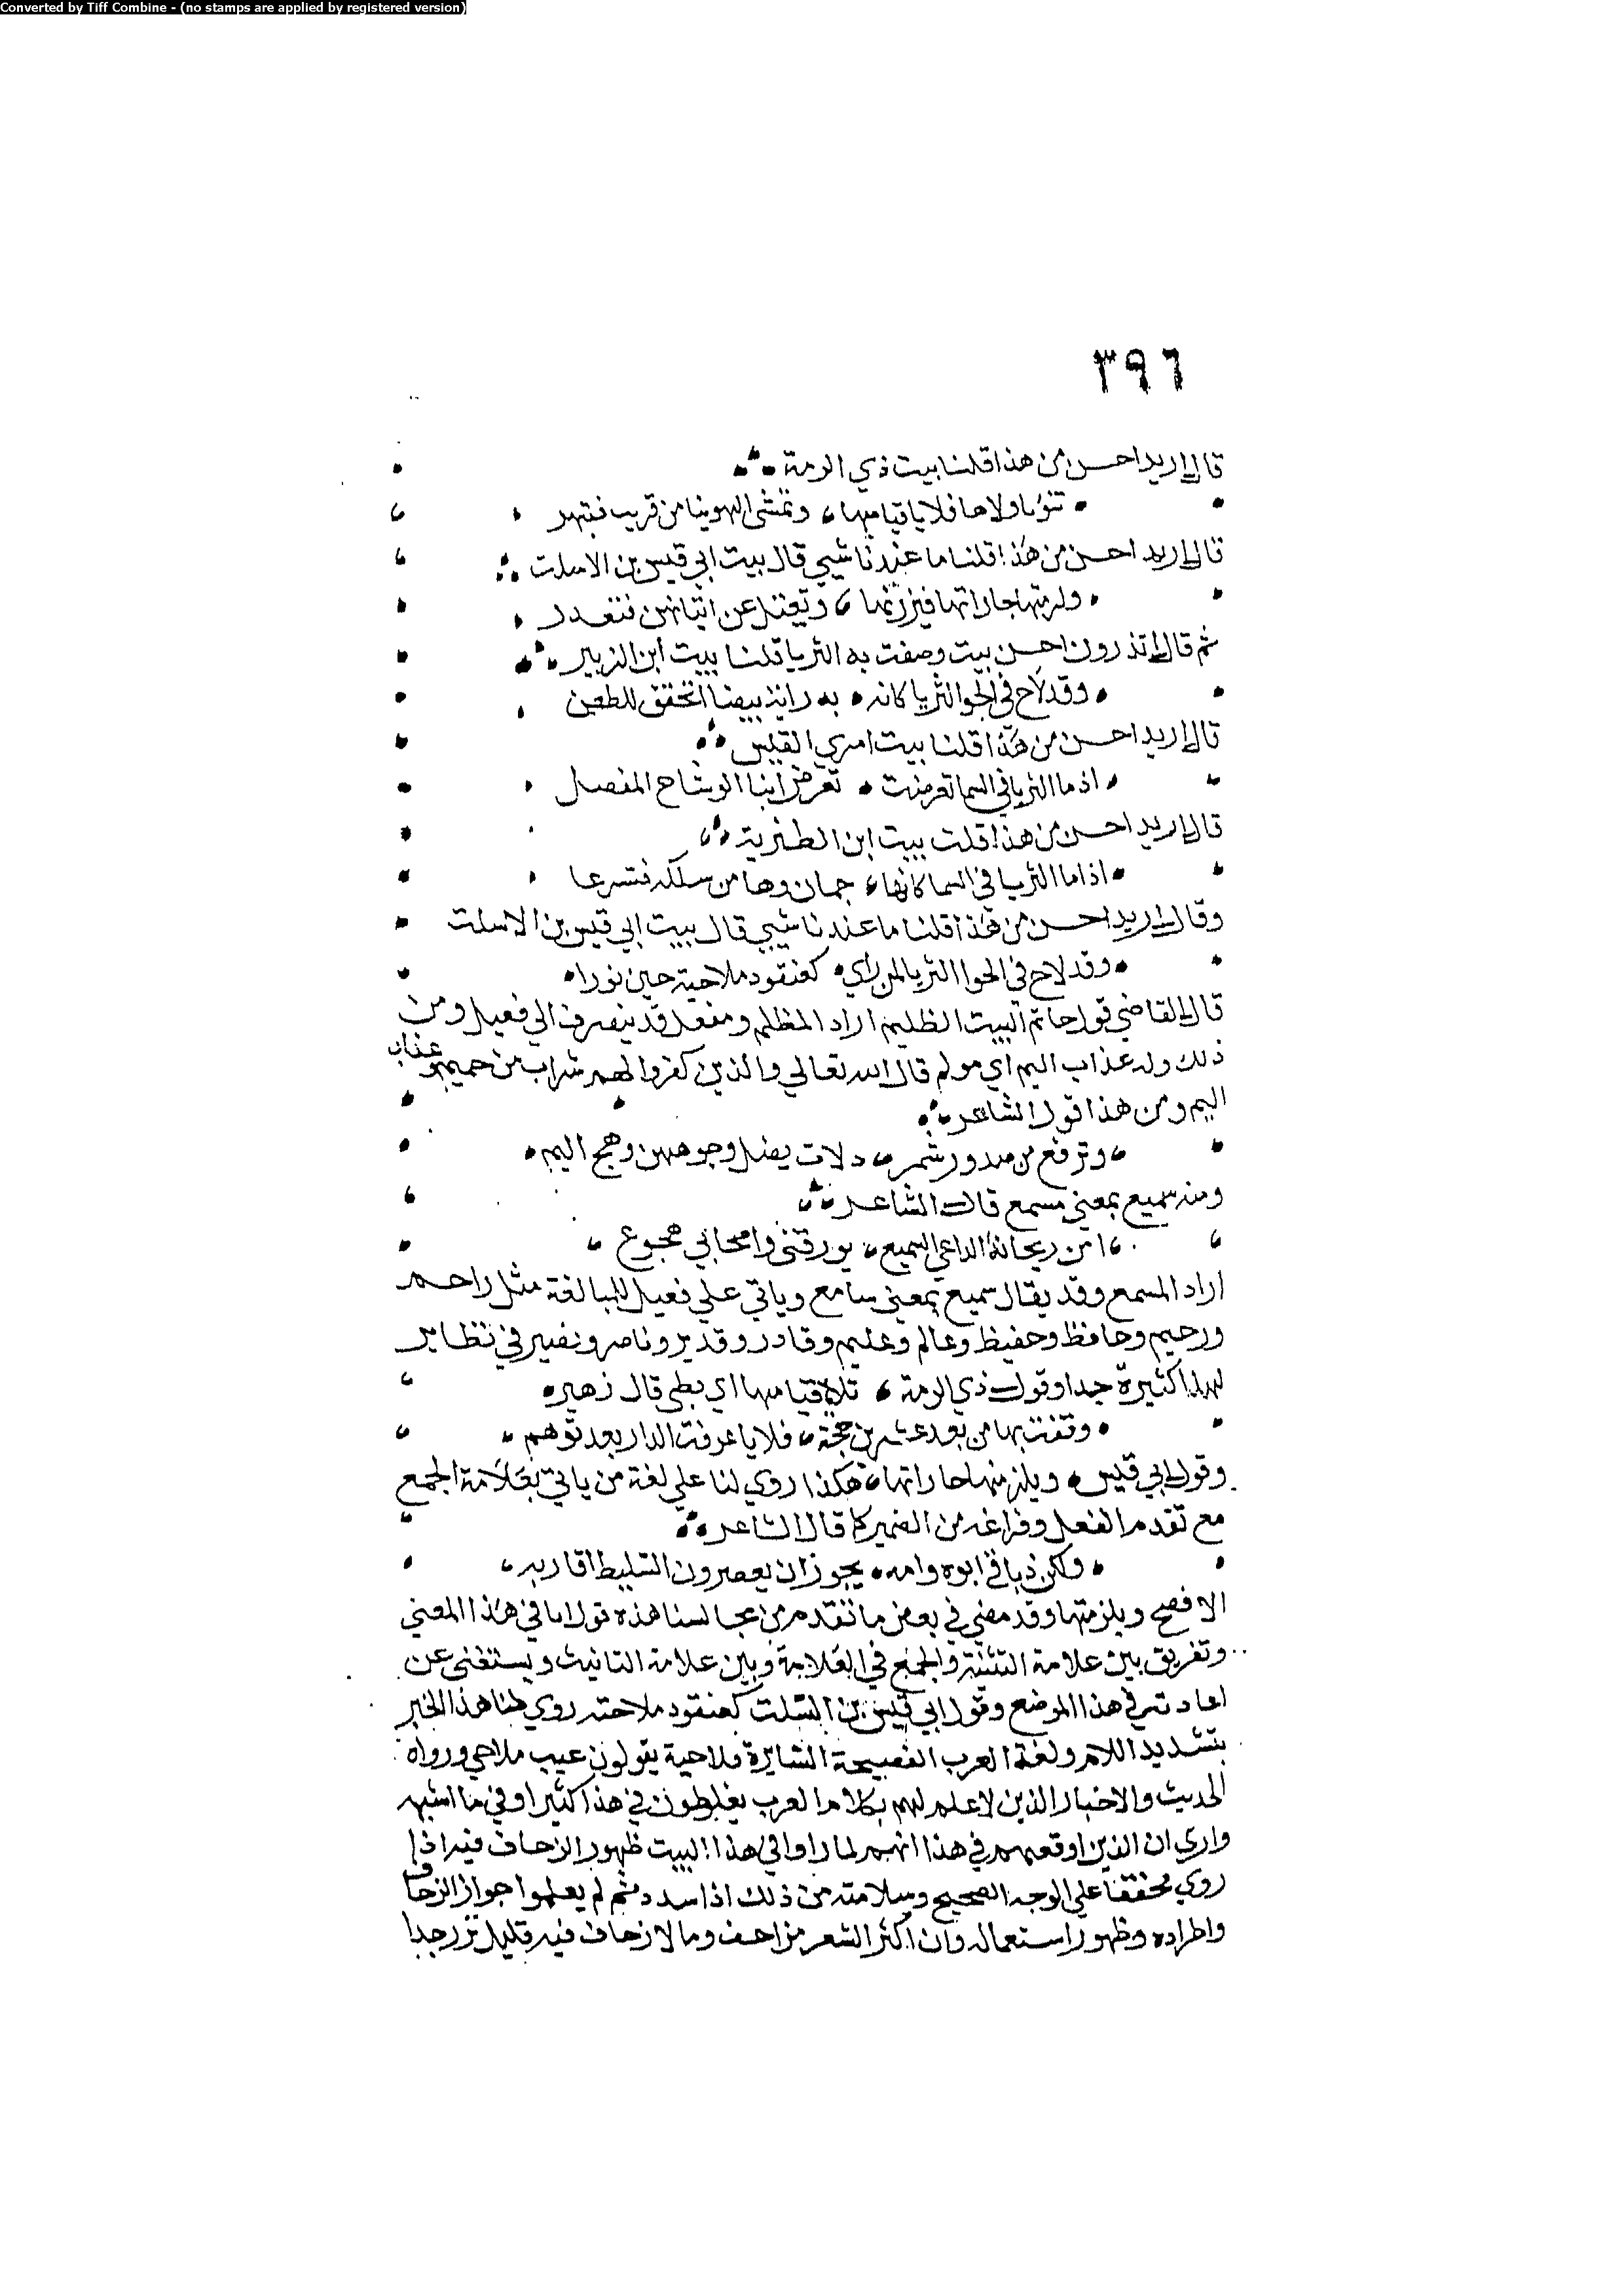 Converted by Tiff Combine - (no stamps are applied by registered version)
٣٩٦
قال اريد احسن من هذا قلنا بيت ذي الرمة
تنؤ باولاها فلايا قيامها وتمشي الهوينا من قريب فتبهر
قال اريد احسن من هذا قلنا ما عندنا شيي قال بيت ابي قيس بن الاسلت
جاراتها فيزرنها وتعتل عن اتيانهن فتعذر
ثم قال اتدرون احسن بيت وصفت به الثريا قلنا بيت ابن الزبير
وقد لاح في الجو الثريا كانه به راية بيضا تخفق للطعن
قال اريد احسن من هذا قلنا بيت امري القيس
اذ ما الثريا في السما تعرضت تعرض اثنا الوشاح المفصل
قال اريد احسن من هذا قلت بيت ابن الطثرية
اذا ما الثريا في السما كانها جمان وها من سلكه فتسرعا
وقال اريد احسن من هذا قلنا ما عندنا شيي قال بيت ابي قيس بن الاسلت
وقد لاح في الجو الثريا لمن راي كعنقود ملاحية حين نورا
قال القاضي قول حاتم البيت الظليم اراد المظلم ومفعل قد ينصرف الي فعيل ومن
ذلك وله عذاب اليم اي مولم قال الله تعالي والذين كفروا لهم شراب من حميم وعذاب
اليم ومن هذا قول الشاعر
وترفع من صدور شمر دلات يصل وجوههن وهج اليم
ومنه سميع بمعني مسمع قال الشاعر
امن ريحانة الداعي السميع يورقني واصحابي هجوع
اراد المسمع وقد يقال سميع بمعني سامع وياتي علي فعيل للمبالغة مثل راحم
ورحيم وحافظ وحفيظ وعالم وعليم وقادر وقدير وناصر ونصير في نظاير
لهذا كثيرة جدا وقول ذي الرمة قيامها اي بطي قال زهير
وقفت بها من بعد عشرين حجة فلايا عرفت الدار بعد توهم
وقول ابي قيس جاراتها هكذا روي لنا علي لغة من ياتي بعلامة الجمع
مع تقدم الفعل وفراغه من الضمير كما قال الشاعر
ولكن ابوه وامه يعصرون السليط اقاربه
الافصح ويلزمها وقد مضي في بعض ما تقدم من مجالسنا هذه قولنا في هذا المعني
وتفريق بين علامة التثنية والجمع في العلامة وبين علامة التانيث ويستغني عن
اعادته في هذا الموضع وقول ابي قيس بن كعنقود روي لنا هذا الخبر
بتشديد اللام ولغة العرب الفصيحة السايرة ملاحية يقولون ملاحي ورواه
الحديث والاخبار الذين لا علم لهم بكلام العرب يغلطون في هذا كثيرا وفي ما اشبهه
واري ان الذين اوقعهم في هذا انهم لما راوا في هذا البيت ظهور الزحاف فيه اذا
روي مخففا علي الوجه الصحيح وسلامته من ذلك اذا سدد ثم لم يعلموا جواز الزحاف
واطراده وظهور استعماله وان اكثر الشعر مزاحف وما لا زحاف فيه قليل نزر جدا